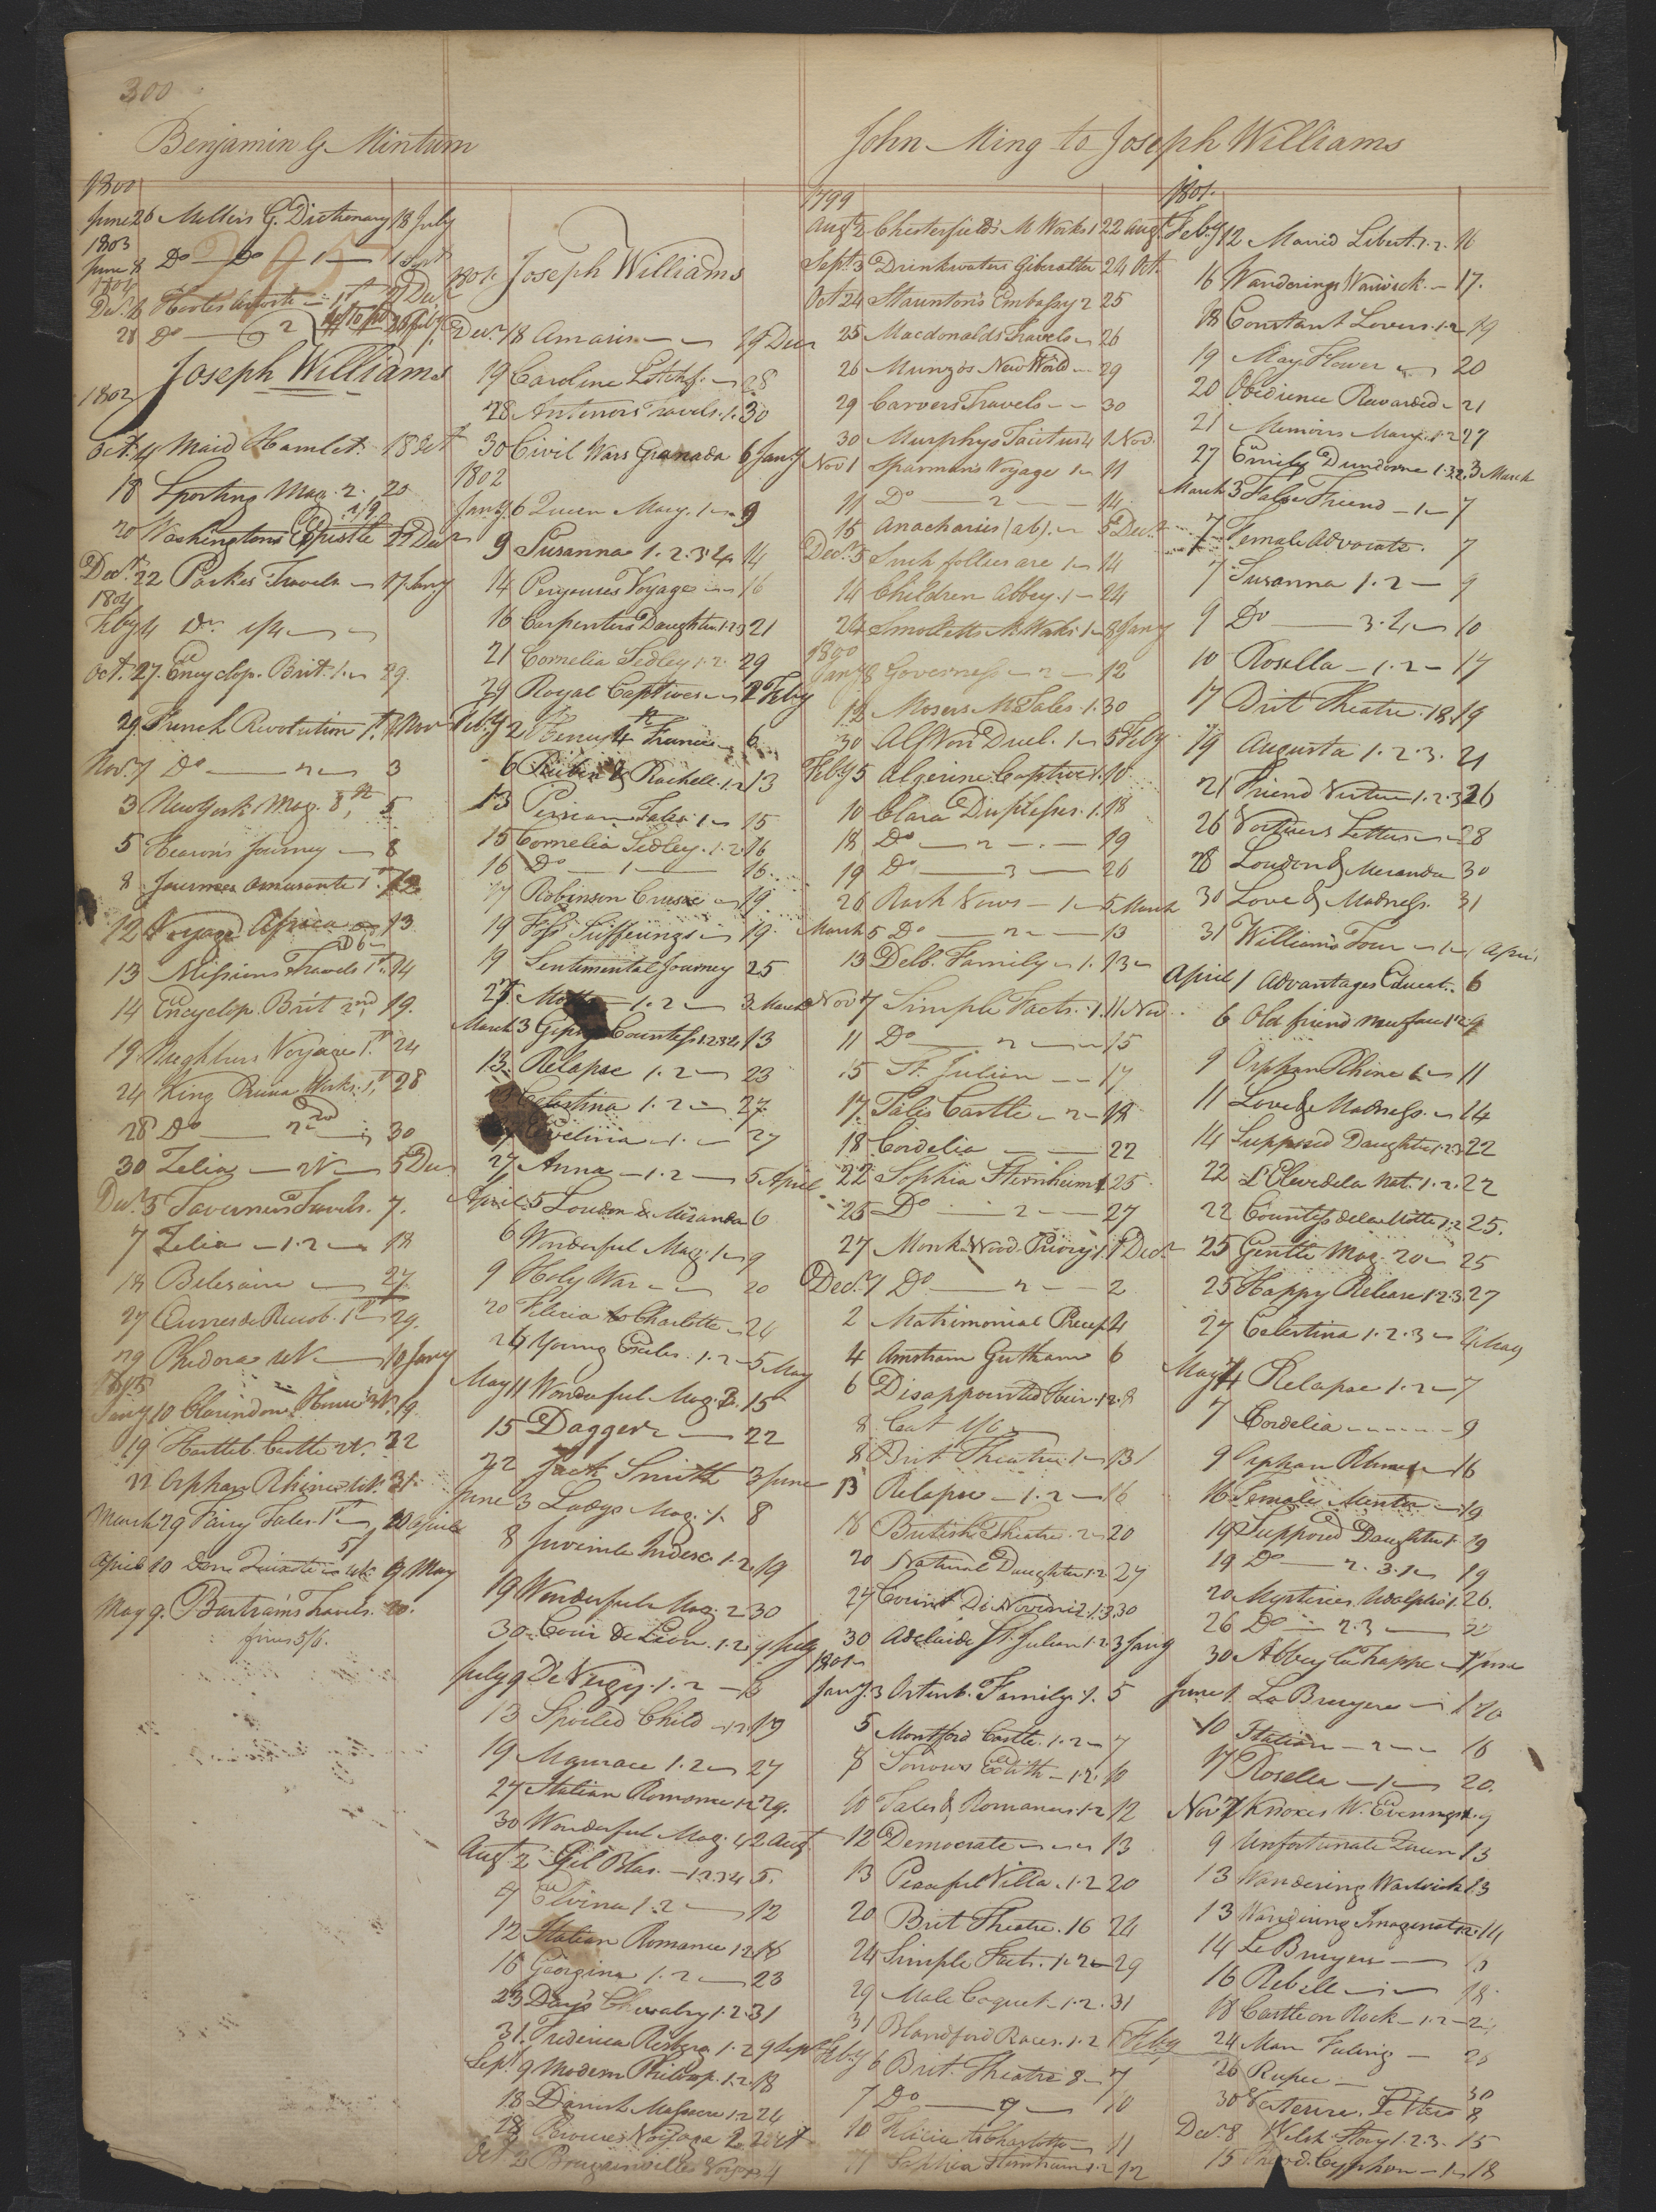 300
Benjamin G Minturn
1800
June 26 Millers G. Dictionary 18 July
1803
June 8 Do Do 1 Sept
295
Dec. 2 Hooles Ariosto 1st Dec
28 Do 2
Joseph Williams
1802
Oct. 4 Maid Hamlet. 18 Oct
18 Sporting Mag. 2. 20
20 Washingtons Epistle 22 Decr
Decr. 22 Parkes Travels 17 Jany
1804
Feby 4 Do.
Oct. 27. Encyclop. Brit. 1. 29.
29. French Revolution 1st. Nov
Nov. 1 Do 2 3
3 New York Mag. 8, 5
5 Hearons Journey 8
8 Journea Amusante 1st. 12
12 Voyage Africa 13
13 Missions Travels 1st. 14
14 Encyclop. Brit 2nd 19.
19. Voyage 1st 24
24 King Prussia Works. 1st, 28
28 Do 2nd 30
30 Zelia 5 Dec
Decr. 5 Taverniers Travels. 7.
7 Zelia 1. 2 18
18 Belesaire 27.
27 1st 29.
29 Phedora 10 Jany
1805
Jany 10 Clarindon House 19.
19. Castle 22
22 Orphan Rhine 31.
March 29 Fairy Tales. 1st 10 April
April 10 Don Quixotte 9 May
May 9. Bartrams Travels. 20.
fines 5/6.
1801. Joseph Williams
Decr. 18 Amaris 19 Decr
19 Caroline Litchf. 28
28 Antenors Travels. 1. 30
30 Civil Wars Granada 6 Jany
1802
Jany 6 Queen Mary. 1 9
9 Susanna 1. 2. 3. 4 14
14 Perouses Voyage 16
16 Carpenters Daughter 1.2.3 21
21 Cornelia Sedley 1. 2. 29
29 Royal Captives 2 Feby
Feby 2 Henry 4th France 6
6 Reuben & Rachell. 1. 2 13
13 Persian Tales 1 15
15 Cornelia Sedley. 1. 2 16
16 Do 1 16.
17 Robinson Crusoe 19.
19 Foss Sufferings 19.
19 Sentimental Journey 25
25 1. 2 3 March
March 3 Gipsy Countess 1.2.3.4 13
13. Relapse 1. 2 23
Celestina 1. 2 27.
Evelina 1. 27
27 Anna 1. 2 5 April
April 5 Loudon & Miranda 6
6 Wonderful Mag. 1 9
9 Holy War 20
20 Felicia to Charlotte 24
24 Young Exiles. 1. 2 5 May
May 11 Wonderful Mag. 2. 15
15 Dagger 22
22 Jack Smith 3 June
June 3 Ladys Mag. 1. 8
8 Juvenile Indisc. 1. 2 19
19 Wonderful Mag. 2 30
30 Coeur de Leon. 1. 2 9 July
July 9 De Vergy. 1. 2 13
13 Spoiled Child 1. 2 19
19 1. 2 27
27 Italian Romance 1.2 29.
30 Wonderful Mag. 4 2 Augt
Augt 2 Gil Blas. 1.2.3.4 5.
7 Elvina 1. 2 12
12 Italian Romance 1.2 16
16 Georgina 1. 2 23
23 Days Chivalry 1. 2 31
31. Frederica Risberg 1. 2 9 Sept
Sept. 9 Modern Philosop. 1. 2. 18
18 Danish Massacre 1.2 24
28 Bruces Voyage 2. 2 Oct
Oct 2 Bougainvilles Voyage 4
John Ming to Joseph Williams
1799
Augt 2 Chesterfields M. Works 1 22 Augt.
Sept. 3 Drinkwaters Giberalter 24 Oct.
Oct 24 Stauntons Embassy 2 25
25 Macdonalds Travels 26
26 Munzos New World 29
29 Carvers Travels 30
30 Murphys Tacitus 4 1 Nov.
Nov 1 Sparmans Voyage 1 11
11 Do 2 14
15 Anacharsis (ab). 5 Decr
Decr. 5 Such follies are 1 14
14 Children Abbey. 1 24
24 Smolletts M. Works. 1 8 Jany
1800
Jany 8 Governess 2 12
12 Mosers M. Tales. 1. 30
30 Alf Von Duel. 1 5 Feby
Feby 5 Algerine Captive 1. 10
10 Clara Duplesses. 1. 18
18 Do 2 19
19 Do 3 26
26 Rash Vows 1 5 March
March 5 Do 2 13
13 Delb. Family 1. 13
Nov 7 Simple Facts. 1. 11 Nov
11 Do 2 15
15 St. Julian 17
17. Tales Castle 2 18
18 Cordelia 22
22 Sophia Sternheim 1 25
25 Do 2 27
27 Monk Wood Priory 1. 1 Decr
Decr. 1 Do 2 2
2 Matrimonial Precep 4
4 Amstram Gutham 6
6 Disappointed Heir. 1.2. 8
8 Cat
8 Brit Theatre 1 13
13 Relapse 1. 2 16
16 British Theatre. 2 20
20 Natural Daughter 1. 2 27
27 Count Di Novini 2. 1. 3. 30
30 Adelaide St. Julian 1. 2 3 Jany
1801
Jany. 3 Ortenb. Family. 1. 5
5 Montford Castle. 1. 2 7
8 Sorrows Edith 1. 2. 10
10 Tales & Romances. 1. 2 12
12 Democrate 13
13 Peaceful Villa. 1. 2 20
20 Brit Theatre. 16 24
24 Simple Facts. 1. 2 29
29 Male Coquet. 1. 2. 31
31 Blandford Races. 1. 2 6 Feby
Feby 6 Brit. Theatre 8 7
7 Do 9 10
10 Felicia to Charlotte 11
11 Sophia Sternheim 1. 2 12
1801.
Feby 12 Marrid Libert. 1. 2. 16
16 Wanderings Warwick. 17.
18 Constant Lovers. 1. 2 19
19 May Flower 20
20 Obedience Rewarded 21
21 Memoirs Mary. 1. 2 27
27 Emily Dundorne 1. 2 3 March
March 3 False Friend 1 7
7 Female Advocate. 7
7 Susanna 1. 2 9
9 Do 3. 4 10
10 Rosella 1. 2 17
17 Brit Theatre. 18. 19
19 Augusta 1. 2. 3. 21
21 Friend Virtue 1. 2. 3 26
26 Letters 28
28 Loudon & Meranda 30
30 Love & Madness. 31
31 Williams Tour 1 1 April
April 1 Advantages Educat. 6
6 Old friend new face 1. 2 9
9 Orphan Rhine 11
11 Love & Madness. 14
14 Supposed Daughter 1. 2. 3 22
22 L'Eleve de la Nat. 1. 2. 22
22 Countess de la Motte 1. 2 25.
25 Gentle Mag. 20 25
25 Happy Release 1. 2. 3. 27
27 Celestina 1. 2. 3 4 May
May 4 Relapse 1. 2 7
7 Cordelia 9
9 Orphan Rhine 16
16 Female Mentor 19
19 Supposed Daughter 1. 19
19 Do 2. 3. 19
20 Mysteries Udolpho 1. 26.
26 Do 2. 3
30 Abbey la Trappe 1 June
June 1 La Bruyere 1 10
10 Station 2 16
17 Rosella 1 20.
Nov 7 Knoxes W. Evenings 1. 9
9 Unfortunate Queen 13
13 Wandering Warwick 13
13 Wandering Imaginat. 1.2. 14
14 La Bruyere
16 Rebell 18.
18 Castle on Rock 1. 2
24 Man Feeling 26
26 Rupee 30
30 Letters 8
Dec. 8 Welsh Story 1. 2. 3. 15
15 Theod. Cyphon 1 18